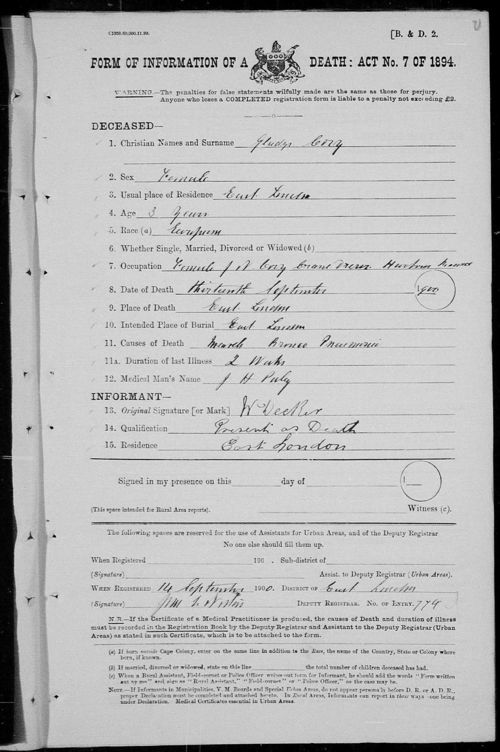 [B. & D. 2.
FORM OF INFORMATION OF A DEATH: ACT No. 7 OF 1894.
WARNING.—The penalties for false statements wilfully made are the same as those for perjury.
Anyone who loses a COMPLETED registration form is liable to a penalty not exceeding £2.
DECEASED—
1. Christian Names and Surname Gladys Cory
2. Sex Female
3. Usual place of Residence East London
4. Age 3 Years
5. Race (a) European
6. Whether Single, Married, Divorced or Widowed (b)
7. Occupation J Cory Crane Driver Harbour
8. Date of Death thirteenth September 1900
9. Place of Death East London
10. Intended Place of Burial East London
11. Causes of Death Bronco Pneumonia
11A. Duration of last Illness 2 Weeks
12. Medical Man's Name J H
INFORMANT—
13. Original Signature [or Mark] W Decker
14. Qualification Present at Death
15. Residence East London
Signed in my presence on this day of 1
Witness (c).
(This space intended for Rural Area reports).
The following spaces are reserved for the use of Assistants for Urban Areas, and of the Deputy Registrar
No one else should fill them up.
When Registered 190 . Sub-district of
(Signature) Assist. to Deputy Registrar (Urban Areas).
WHEN REGISTERED 14 September 1900. DISTRICT OF East London
(Signature) DEPUTY REGISTRAR. No. OF ENTRY. 779
N.B.—If the Certificate of a Medical Practitioner is produced, the causes of Death and duration of illness
must be recorded in the Registration Book by the Deputy Registrar and Assistant to the Deputy Registrar (Urban
Areas) as stated in such Certificate, which is to be attached to the form.
(a) If born outside Cape Colony, enter on the same line in addition to the Race, the name of the Country, State or Colony where
born, if known.
(b) If married, divorced or widowed, state on this line the total number of children deceased has had.
(c) When a Rural Assistant, Field-cornet or Police Officer writes out form for Informant, he should add the words "Form written
out by me" and sign as "Rural Assistant," "Field-cornet" or "Police Officer," as the case may be.
NOTE.—If Informants in Municipalities, V. M. Boards and Special Urban Areas, do not appear personally before D. R. or A. D. R.,
proper Declaration must be completed and attached hereto. In Rural Areas, Informants can report in three ways—one being
under Declaration. Medical Certificates essential in Urban Areas.